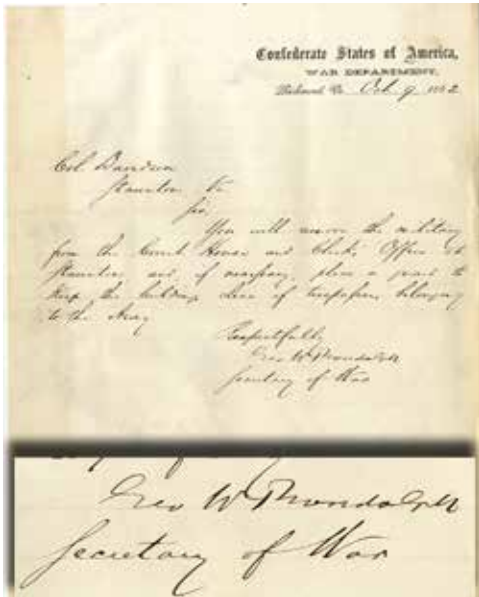 Confederate States of America,
WAR DEPARTMENT,
Richmond Va. Oct. 9 1862
Col. Davidson
Staunton Va
Sir,
You will remove the military
from the Court House and Clerks Office at
Staunton and, if necessary, place a guard to
keep the buildings clear of trespassers belonging
to the Army
Respectfully
Geo W Randolph
Secretary of War
Geo W Randolph
Secretary of War